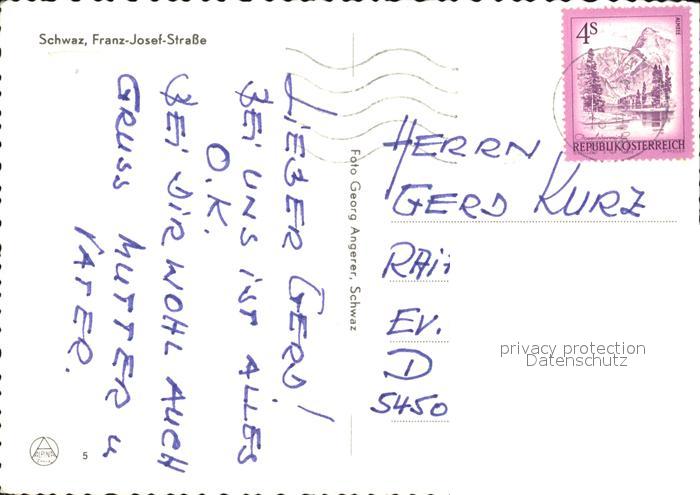 Schwaz, Franz-Josef-Straße
LIEBER GERD!
BEI UNS IST ALLES
O.K.
BEI DIR WOHL AUCH
GRUSS MUTTER u
VATER.
Foto Georg Angerer, Schwaz
4S
ALMSEE
REPUBLIK ÖSTERREICH
HERRN
GERD KURZ
EV.
D
5450
privacy protection
Datenschutz
ALPINA
5